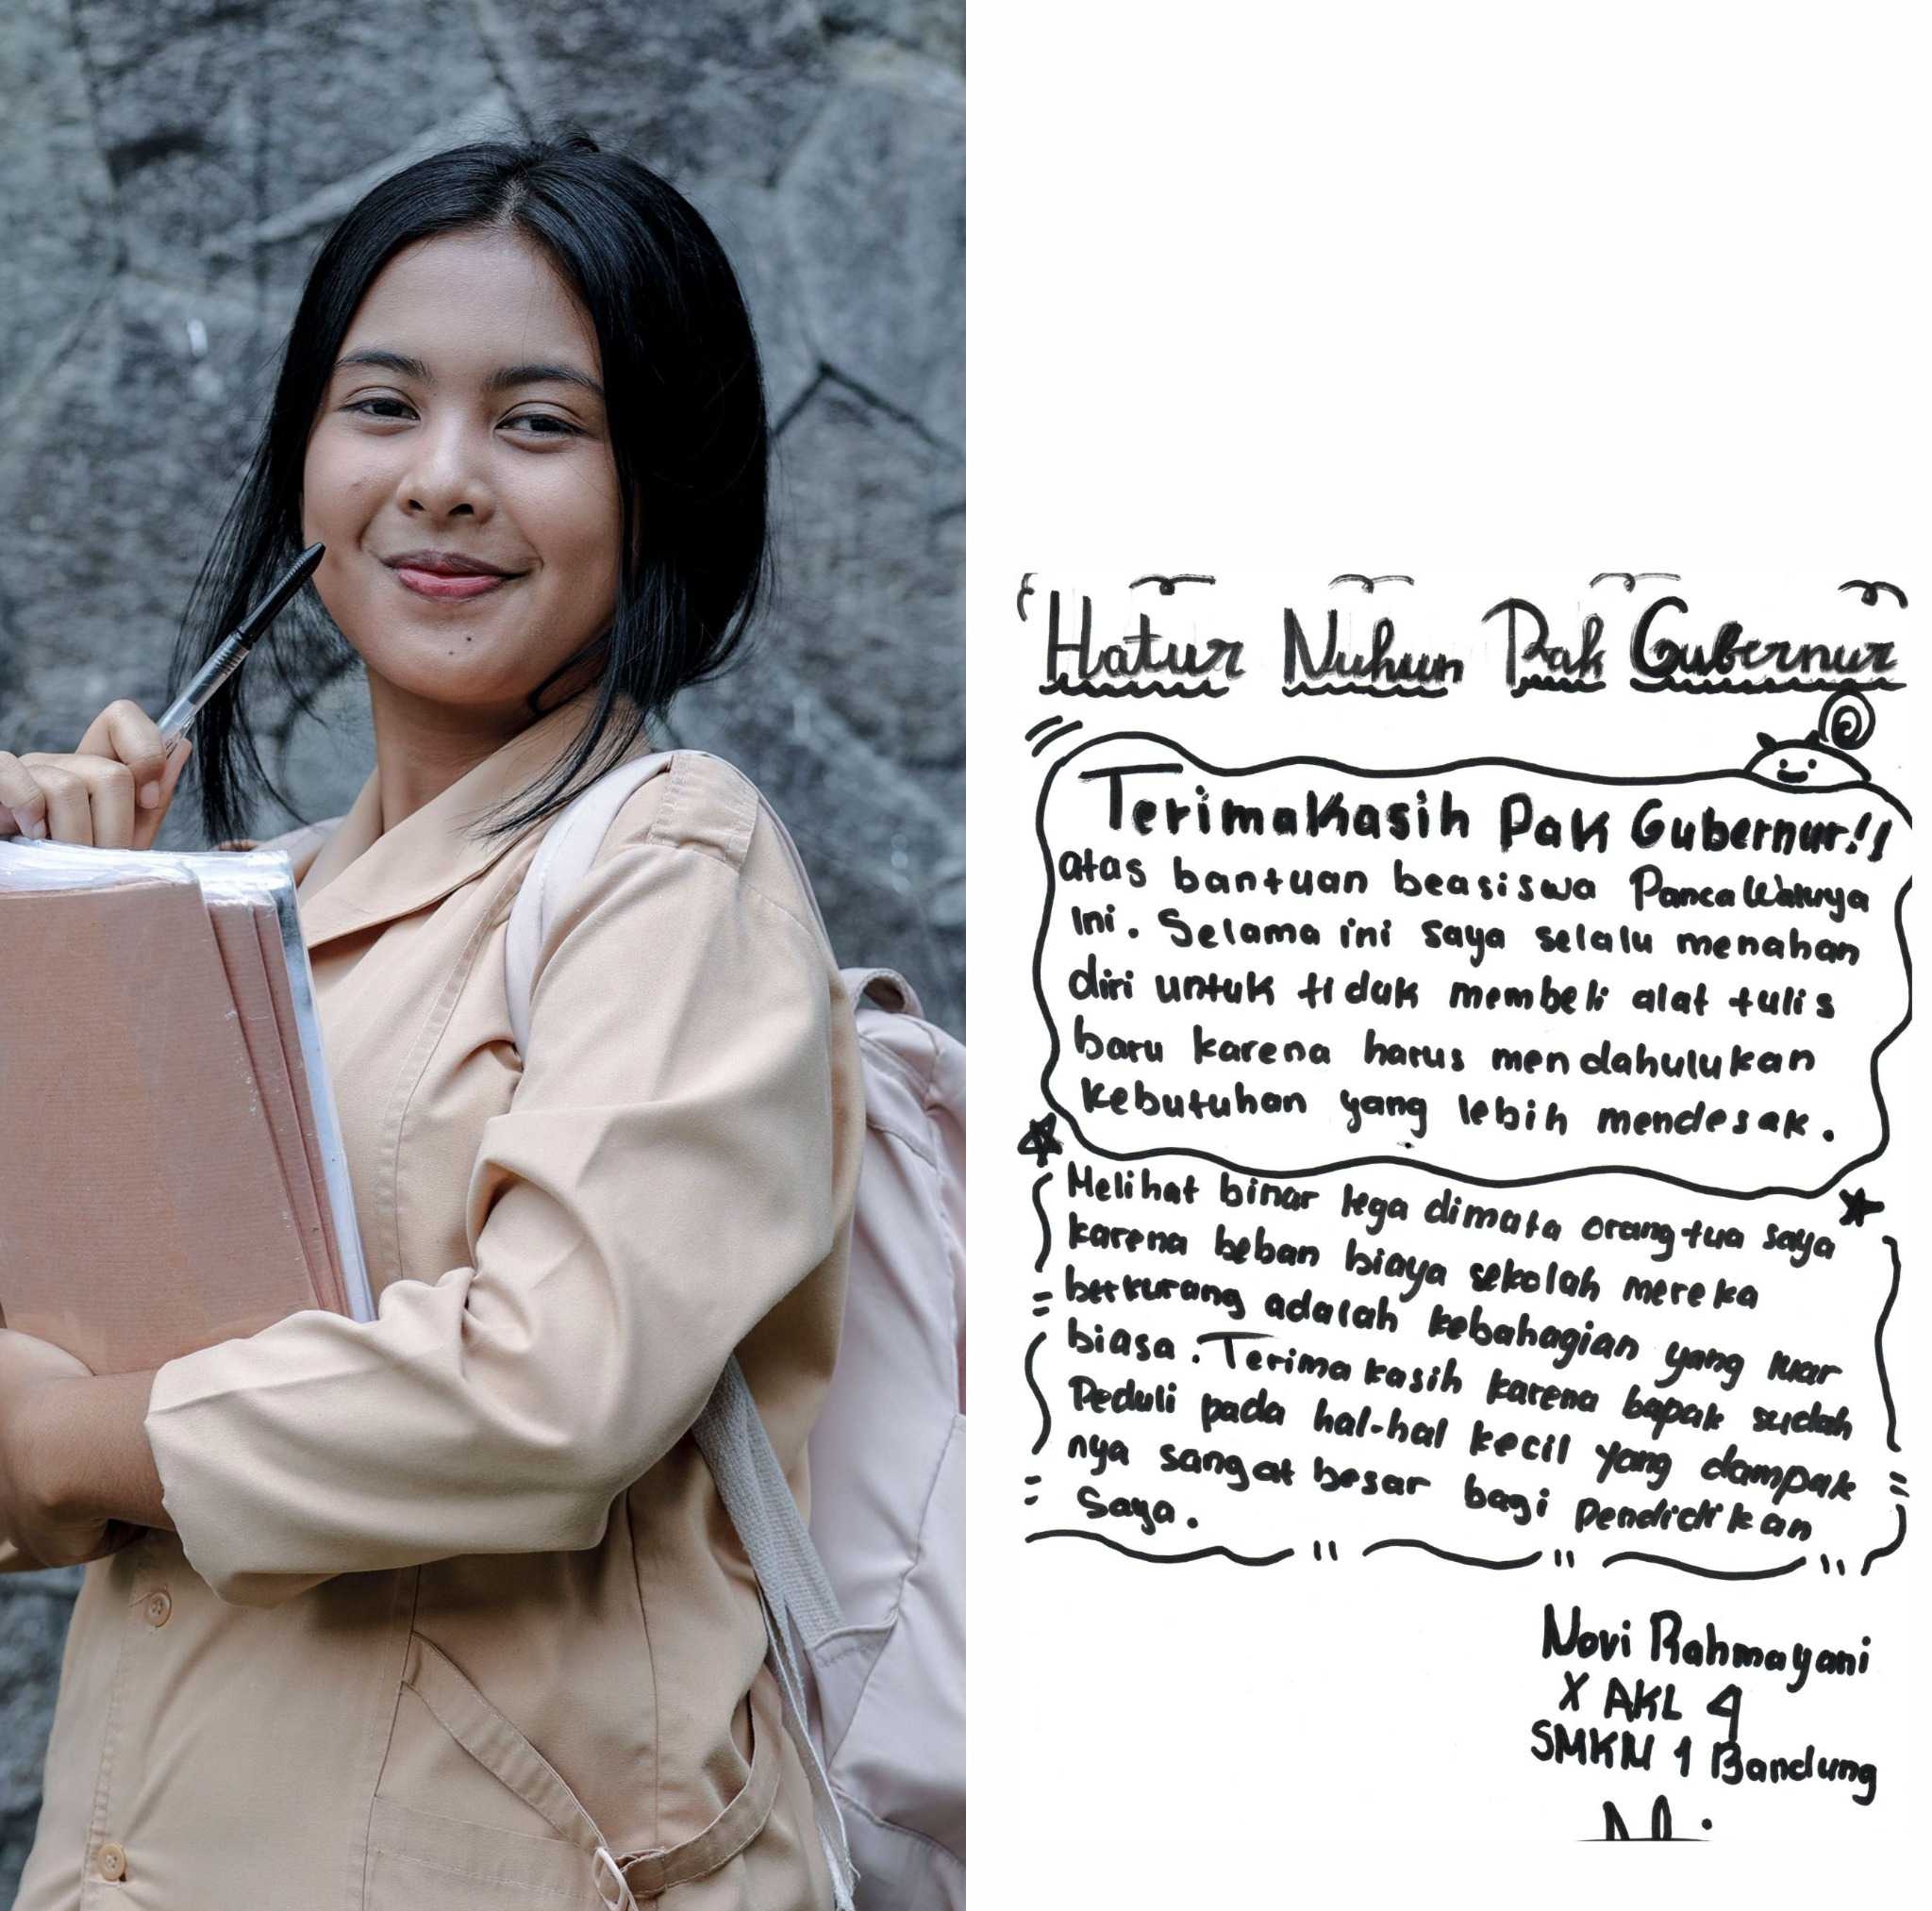 Hatur Nuhun Pak Gubernur
Terimakasih Pak Gubernur!!
atas bantuan beasiswa Panca Waluya
ini. Selama ini saya selalu menahan
diri untuk tiduk membeli alat tulis
baru karena harus mendahulukan
kebutuhan yang lebih mendesak.
Melihat binar lega dimata orangtua saya
karena beban biaya sekolah mereka
berkurang adalah kebahagian yang luar
biasa. Terima kasih karena bapak sudah
Peduli pada hal-hal kecil yang dampak
nya sangat besar bagi Pendidikan
Saya.
Novi Rahmayani
X AKL 4
SMKN 1 Bandung